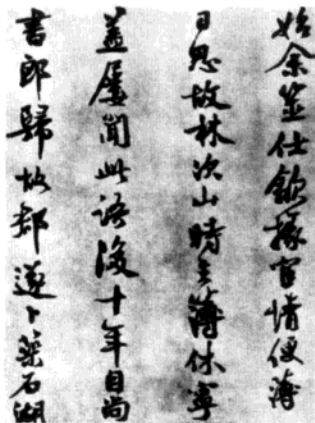 始余筮仕歙掾宦情便薄
日思故林次山時主簿休寧
蓋屢聞此語後十年自尚
書郎歸故郡遂卜築石湖